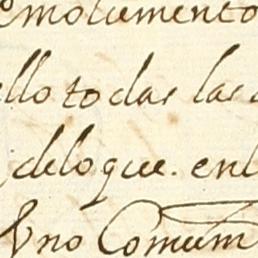 emolumento
ello todas las
deloque. enl
Vno Comum